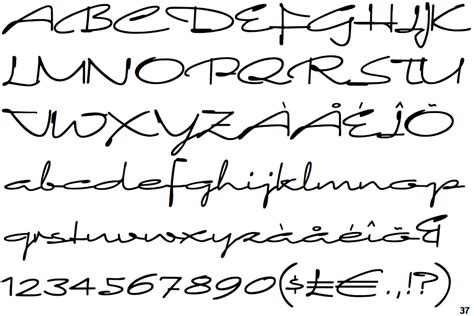 ABCDEFGHIJK
LMNOPQRSTU
VWXYZÀÅÉÎÕ
abcdefghijklmnop
qrstuvwxyzàåéîõ&
1234567890($£€.,!?)
37